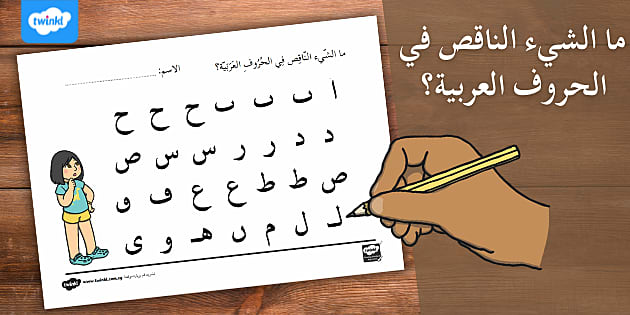 twinkl
ما الشيء الناقص في
الحروف العربية؟
ما الشّيء النّاقِص فِي الحُرُوفِ العَرَبَيّة؟ الاسم:
ا ٮ ٮ ٮ ح ح ح
د د ر ر س س ص
ص ط ط ع ع ڡ و
لـ ل م ں هـ و ى
twinkl
twinkl